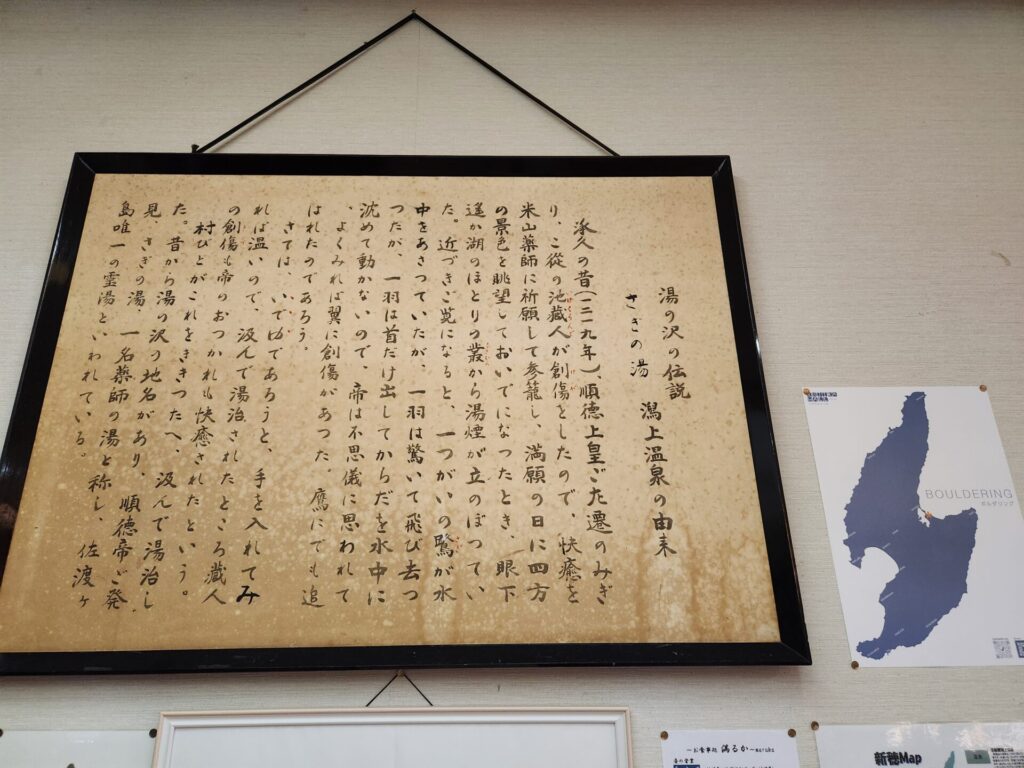 湯の沢の伝説
さぎの湯　潟上温泉の由来
承久の昔(一二一九年)、順徳上皇ご左遷のみぎ
り、こ従の池蔵人が創傷としたので、快癒を
米山薬師に祈願して参籠し、満願の日に四方
の景色を眺望しておいでになったとき、眼下
遙か湖のほとりの叢から湯煙が立のぼってい
た。近づきご覧になると、一つがいの鷺が水
中をあさっていたが、一羽は驚いて飛び去っ
つたが、一羽は首だけ出してからだを水中に
沈めて動かないので、帝は不思儀に思われて
、よくみれば翼に創傷があった、鷹にでも追
はれたのであろう。
さては、いでゆであろうと、手を入れてみ
れば温いので、汲んで湯治されたところ蔵人
の創傷も帝のおつかれも快癒されたという。
村びとがこれをききつたへ、汲んで湯治し
た。昔から湯の沢の地名があり、順徳帝ご発
見、さぎの湯、一名薬師の湯と称し、佐渡ヶ
島唯一の霊湯といわれている。
BOULDERING
ボルダリング
〜お食事処 潟るか〜
新穂Map